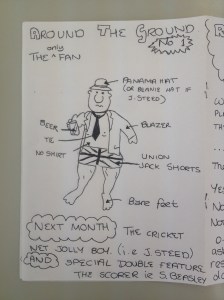 AROUND THE GROUND
No 1
only
THE ^ FAN
PANAMA HAT
(OR BEANIE HAT IF
J. STEED)
BEER
BLAZER
TIE
NO SHIRT
UNION
JACK SHORTS
Bare feet
NEXT MONTH
THE CRICKET
NET JOLLY BOY (i.e J. STEED)
AND SPECIAL DOUBLE FEATURE
THE SCORER ie S. BEASLEY